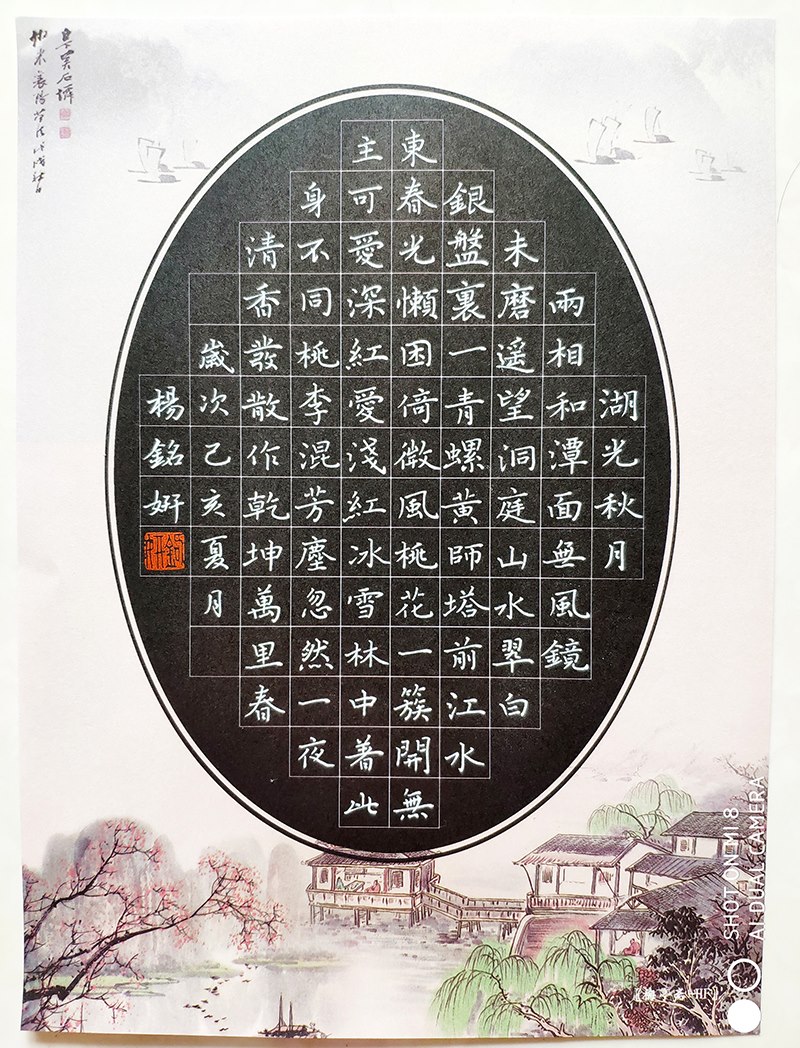 湖光秋月
兩相和潭面無風鏡
未磨遥望洞庭山水翠白
銀盤裏一青螺黃師塔前江水
東春光懶困倚微風桃花一簇開無
主可愛深紅愛淺紅冰雪林中著此
身不同桃李混芳塵忽然一夜
清香發散作乾坤萬里春
歲次己亥夏月
楊銘姸
SHOT ON MI 8
AI DUAL CAMERA